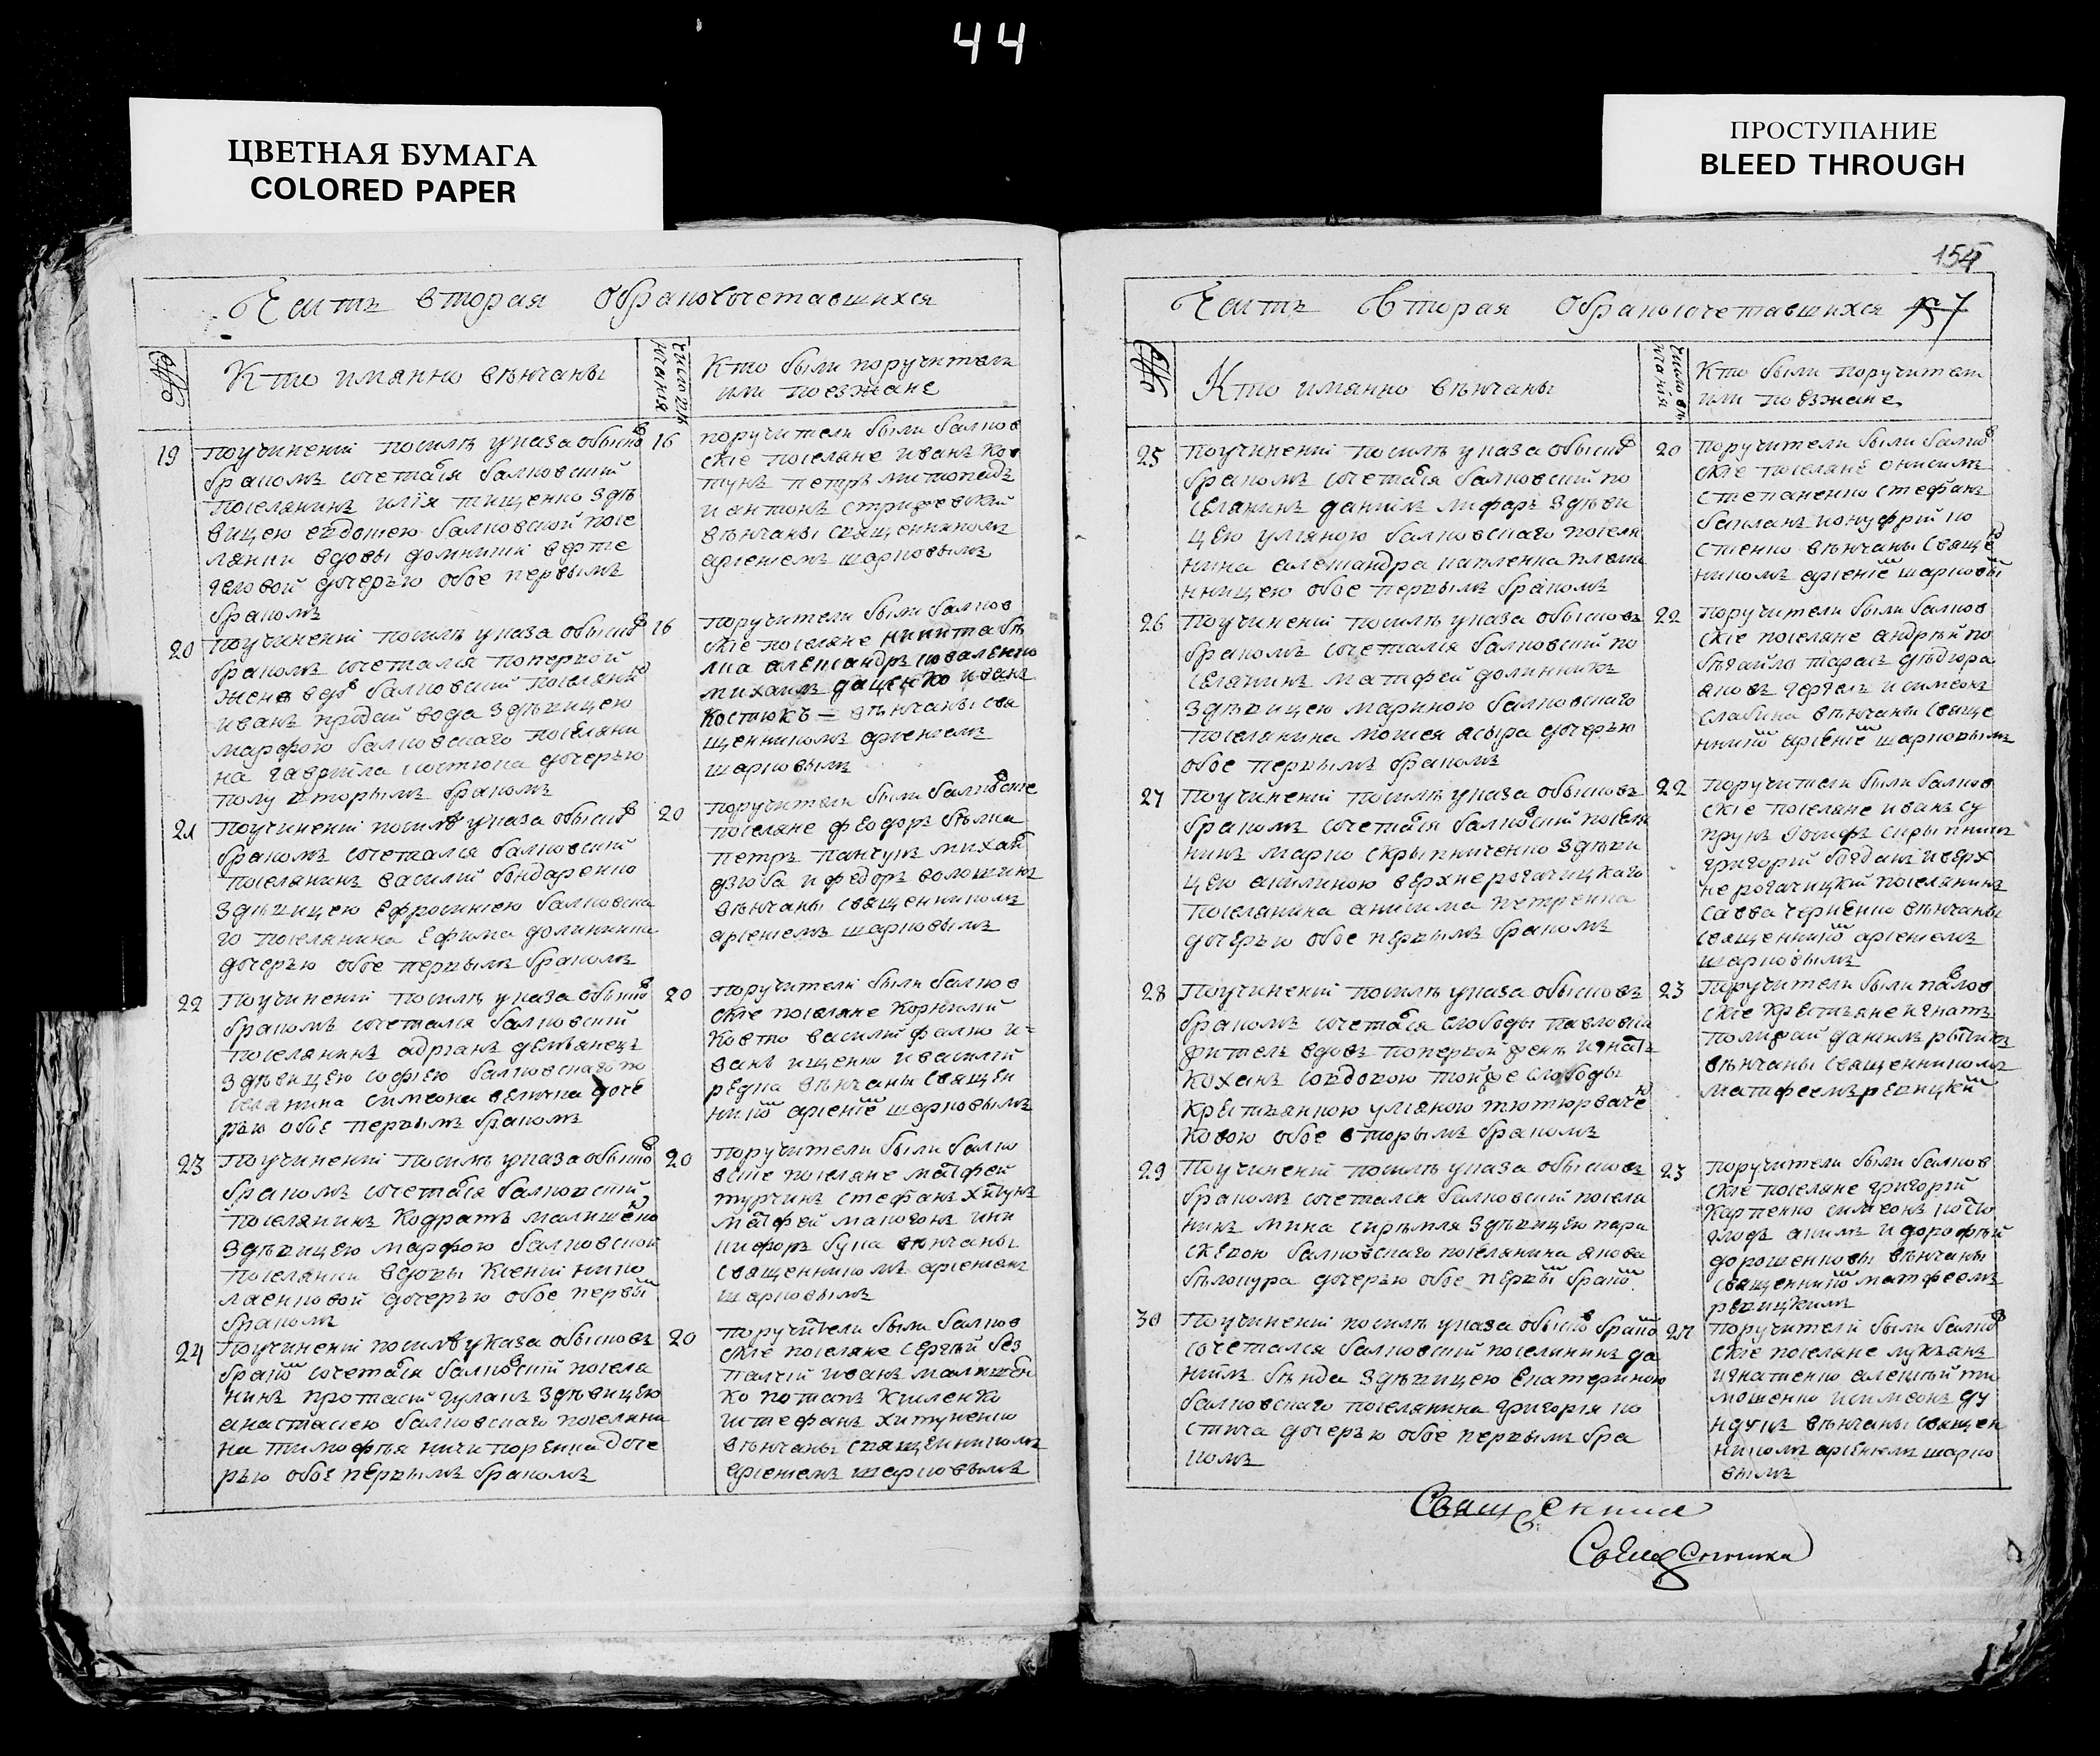 44
ЦВЕТНАЯ БУМАГА
COLORED PAPER
ПРОСТУПАНИЕ
BLEED THROUGH
Часть вторая обракосочетавшихся
Кто имянно вѣнчаны
число вѣнчания
Кто были поручители
или поезжане
19
поучинении посилѣ указа обысков
16
бракомъ сочетался балковский
поселянинъ илія тищенко здѣ
вицею евдокею балковской посе
лянки вдовы домникии
дочерью обое первымъ
бракомъ
поручители были балков
скіе поселяне иванъ ков
тунъ петръ митопадъ
и антонъ
вѣнчаны священникомъ
арсениемъ шарковымъ
20
поучинении посилѣ указа обысков
16
бракомъ сочетался поперvой
женѣ вдов балковский поселянин
иванъ продай вода здѣвицею
марфою балковскаго поселяни
на гавриила костюка дочерью
полу вторымъ бракомъ
поручители были балков
скіе поселяне никита бѣ
лка александръ коваленко
михаилъ даценко иванъ
костюкъ — вѣнчаны свя
щенникомъ арсениемъ
шарковымъ
21
поучинении посилѣ указа обысков
20
бракомъ сочетался балковский
поселянинъ василий бондаренко
здѣвицею ефросиниею балковска
го поселянина ефима долинника
дочерью обое первымъ бракомъ
поручители были балковские
поселяне феодоръ бѣлка
петръ панчукъ михаил
дзюба и федоръ волошинъ
вѣнчаны священникомъ
арсениемъ шарковымъ
22
поучинении посилѣ указа обысков
20
бракомъ сочетался балковский
поселянинъ адріанъ демьянецъ
здѣвицею софиею балковскаго по
селянина симеона величка доче
рью обое первымъ бракомъ
поручители были балков
скіе поселяне корнилий
ковто василий фалко и=
ванъ ищенко и василий
редка вѣнчаны священ
ником арсение шарковымъ
23
поучинении посилѣ указа обысков
20
бракомъ сочетался балковский
поселянинъ кодратъ малишенко
здѣвицею марфою балковской
поселянки вдовы ксении нико
лаенковой дочерью обое первы
бракомъ
поручители были балко
вские поселяне матфей
турчинъ стефанъ хитунъ
матфей макогонъ ини
кифоръ бука вѣнчаны
священникомъ арсениемъ
шарковымъ
24
поучинении посилѣ указа обысковъ
20
браком сочетался балковский посела
нинъ протасий гулакъ здѣвицею
анастасиею балковскаго поселяни
на тимофѣя ничипоренка доче
рью обое первымъ бракомъ
поручители были балков
скіе поселяне сергѣй без
палчий иванъ малишен
ко потапъ киленко
истефанъ хитуненко
вѣнчаны священникомъ
арсениемъ шарковымъ
154
Часть вторая обракосочетавшихся
Кто имянно вѣнчаны
число вѣнчанія
Кто были поручители
или поезжане
25
поучинении посилѣ указа обысков
20
бракомъ сочетался балковский по
селянинъ даниилъ лифаръ здѣви
цею улияною балковскаго поселя
нина александра капленка племя
нницею обое первымъ бракомъ
поручители были балков
скіе поселяне онисимъ
степаненко стефанъ
капланъ ионуфрий ко
стенко вѣнчаны свяще
нникомъ арсение шарковы
26
поучинении посилѣ указа обысковъ
22
бракомъ сочетался балковский по
селянинъ матфей долинникъ
здѣвицею мариною балковскаго
поселянина моисея ясыра дочерью
обое первымъ бракомъ
поручители были балков
скіе поселяне андрѣй по
бѣгайло тарасъ дѣдора
яковъ гергель и симеонъ
слабина вѣнчаны свяще
нником арсение шарковымъ
27
поучинении посилѣ указа обысковъ
22
бракомъ сочетался балковский поселя
нинъ марко скрыпниченко здѣви
цею акилиною верхнерогачицкаго
поселянина анисима петренка
дочерью обое первымъ бракомъ
поручители были балков
скіе поселяне иванъ су
прунъ иосифъ скрыпникъ
григорий богданъ и верх
не рогачицкий поселянинъ
савва черненко вѣнчаны
священником арсениемъ
шарковымъ
28
поучинении посилѣ указа обысковъ
23
бракомъ сочетался слободы павловки
житель вдовъ поперvой женѣ игнатъ
коханъ совдовою тойже слободы
крестьянкою улияною тютюрваче
ковою обое вторымъ бракомъ
поручители были павлов
скіе крестьяне игнатъ
полижай даниилъ
вѣнчаны священникомъ
матфеемъ рѣвицки
29
поучинении посилѣ указа обысковъ
23
бракомъ сочетался балковский поселя
нинъ мина сирѣмля здѣвицею пара
скевою балковскаго поселянина якова
бѣлокура дочерью обое первы браком
поручители были балков
скіе поселяне григорий
карпенко симеонъ
акимъ и дорофѣй
дорошенковы вѣнчаны
священником матфеемъ
рѣвицкимъ
30
поучинении посилѣ указа обысков браком
27
сочетался балковский поселянинъ да
ниилъ бѣнда здѣвицею екатериною
балковскаго поселянина григорія ко
стюка дочерью обое первымъ бра
комъ
поручители были балков
скіе поселяне лукъянъ
игнатенко алексѣй ти
мошенко исимеонъ ду
ндукъ вѣнчаны священ
никомъ арсениемъ шарко
вымъ